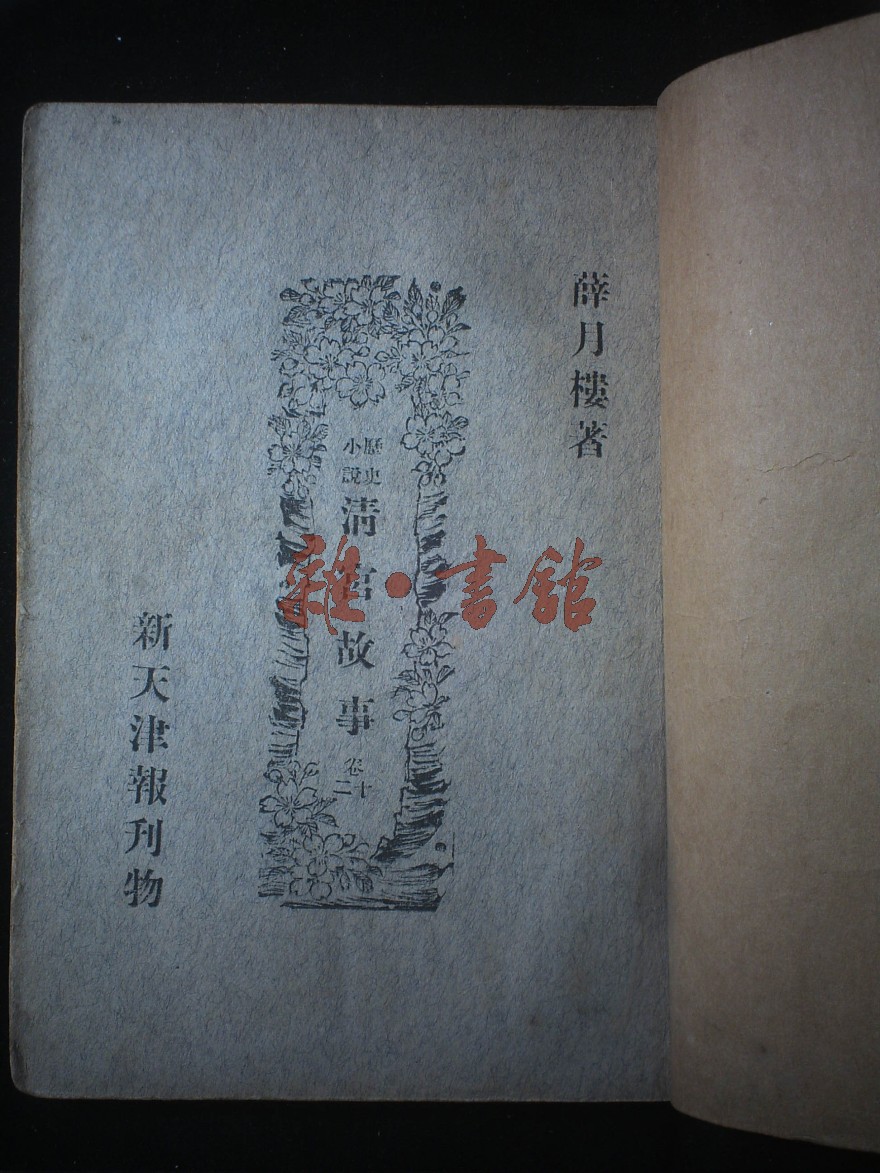 薛月樓著
歷史
小說
清宮故事
卷十
二
新天津報刊物
雜·書館